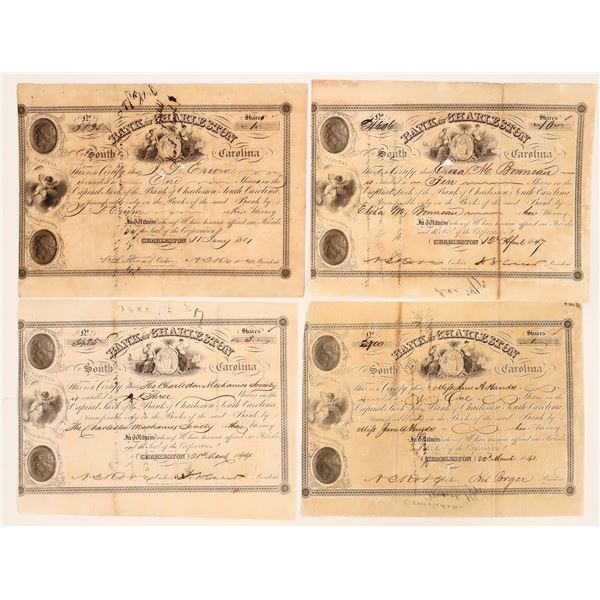 No Shares
1
BANK OF CHARLESTON
South Carolina
This is to Certify that
is entitled to One Shares in the
Capital Stock of the Bank of Charleston South Carolina
transferable only on the Books of the said Bank by
his Attorney
In Witness whereof We have hereunto affixed our Hands
and the Seal of the Corporation
CHARLESTON 11 Jany 1851
Cashier President
No Shares
10
BANK OF CHARLESTON
South Carolina
This is to Certify that Eliza M. Bonneau
is entitled to Ten Shares in the
Capital Stock of the Bank of Charleston South Carolina
transferable only on the Books of the said Bank by
Eliza M. Bonneau her Attorney
In Witness whereof We have hereunto affixed our Hands
and the Seal of the Corporation
CHARLESTON April 1847
Cashier President
No Shares
3425 3
BANK OF CHARLESTON
South Carolina
This is to Certify that The Charleston Mechanics Society
is entitled to Three Shares in the
Capital Stock of the Bank of Charleston South Carolina
transferable only on the Books of the said Bank by
The Charleston Mechanics Society their Attorney
In Witness whereof We have hereunto affixed our Hands
and the Seal of the Corporation
CHARLESTON 21st March 1844
Cashier President
No Shares
2900 1
BANK OF CHARLESTON
South Carolina
This is to Certify that Miss Jane
is entitled to One Shares in the
Capital Stock of the Bank of Charleston South Carolina
transferable only on the Books of the said Bank by
Miss Jane her Attorney
In Witness whereof We have hereunto affixed our Hands
and the Seal of the Corporation
CHARLESTON 20th March 1841
Cashier President